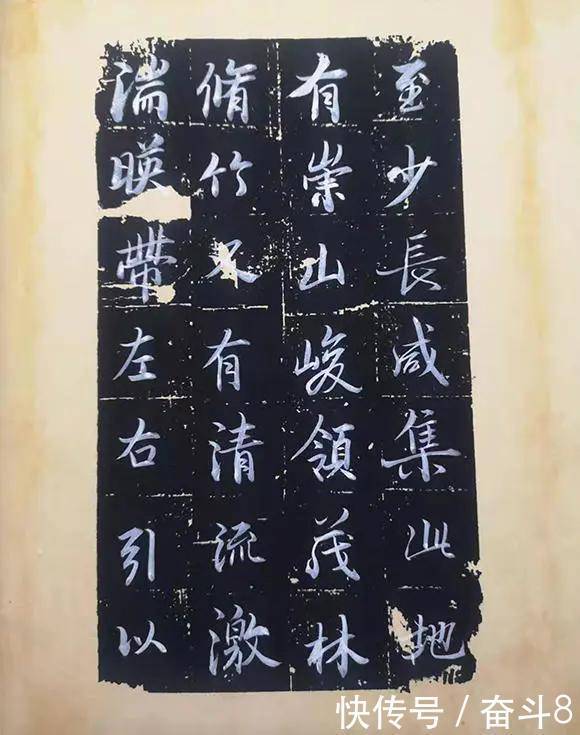 至少長咸集此地
有崇山峻領茂林
脩竹又有清流激
湍暎帶左右引以
快传号/奋斗8